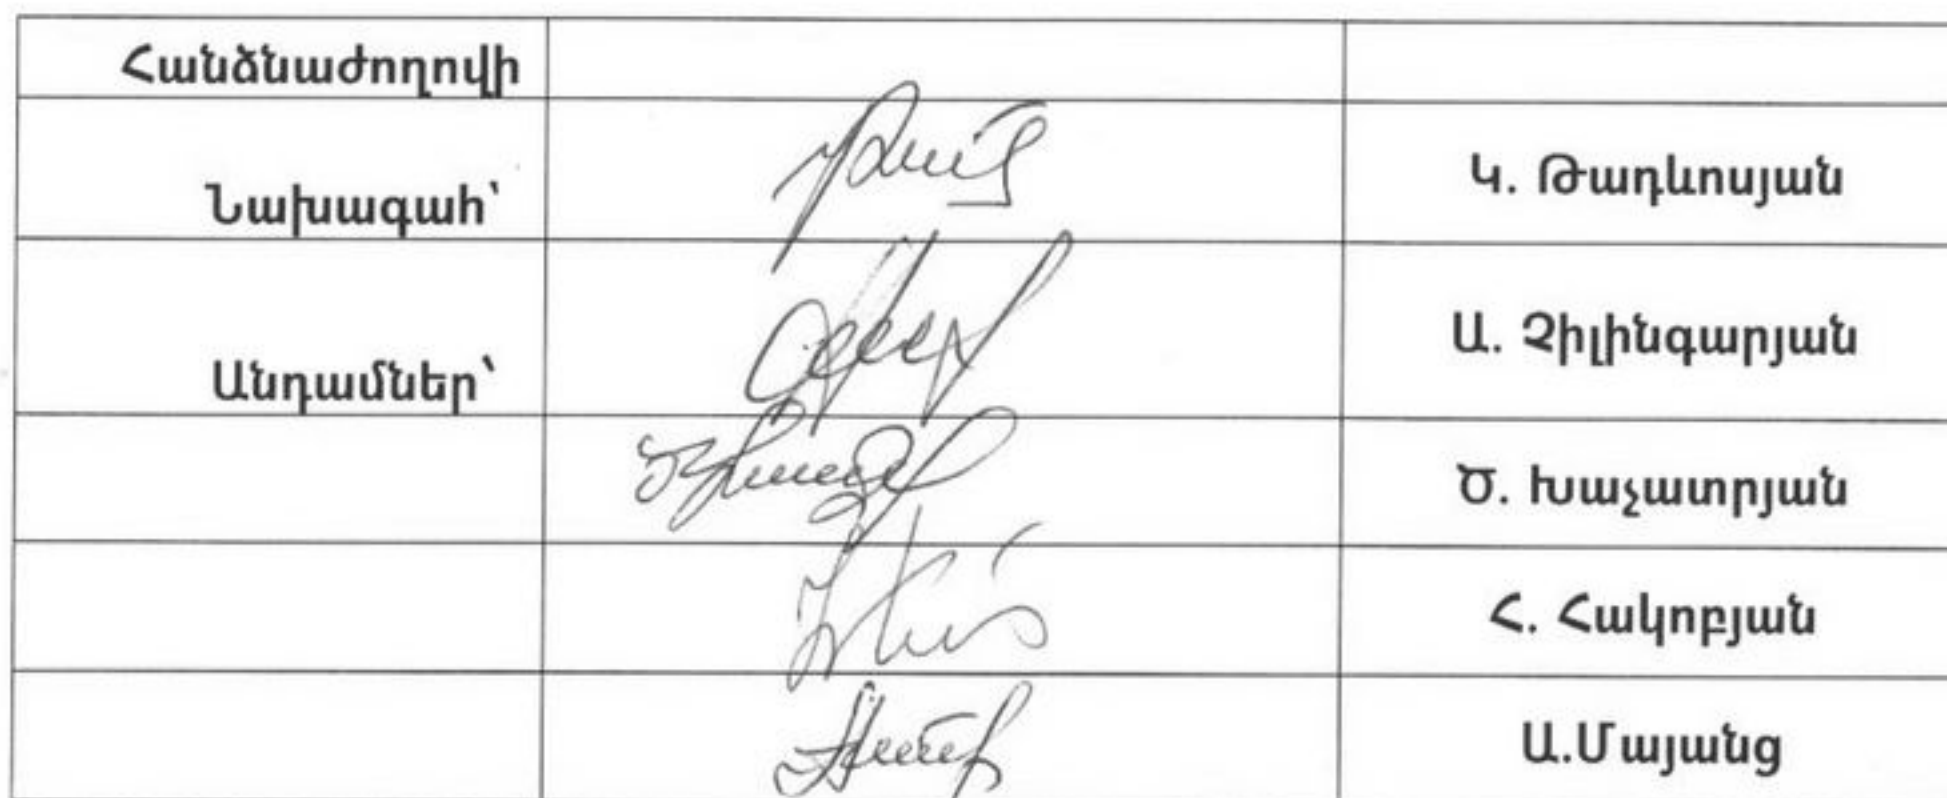 Հանձնաժողովի
Նախագահ՝ Կ. Թադևոսյան
Անդամներ՝ Ա. Չիլինգարյան
Ծ. Խաչատրյան
Հ. Հակոբյան
Ա.Մայանց